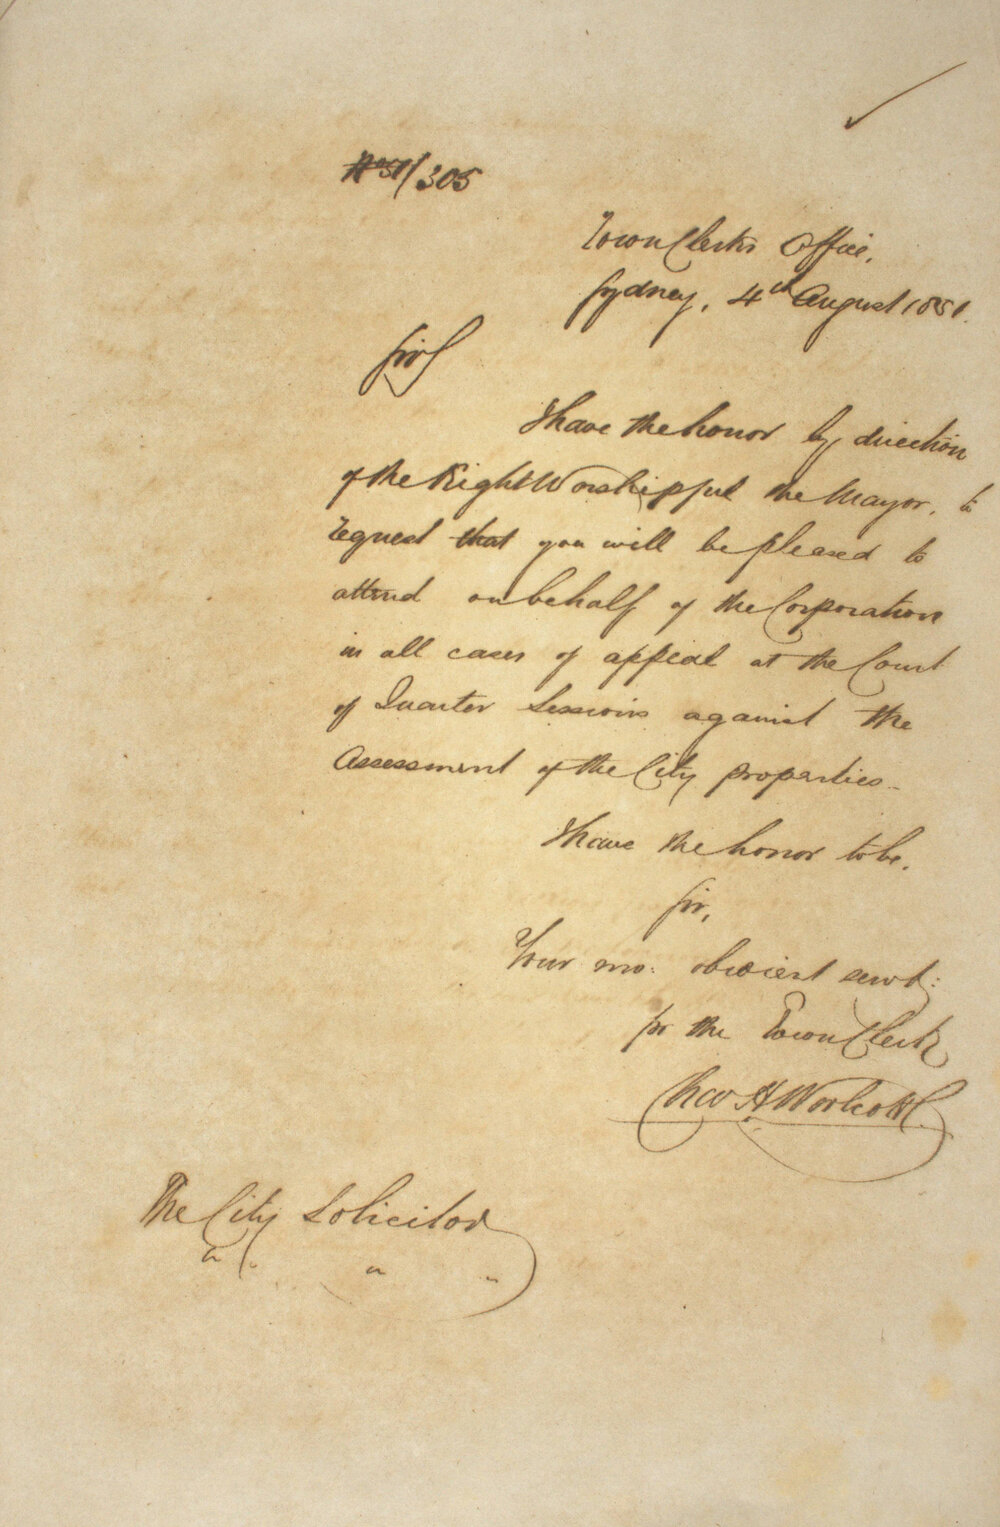 No 51/305
Town Clerk's Office,
Sydney, 4th August 1851.
Sir
I have the honor by direction
of the Right Worshipful the Mayor, to
request that you will be pleased to
attend on behalf of the Corporation
in all cases of appeal at the Court
of Quarter Sessions against the
Assessment of the City properties.
I have the honor to be,
Sir,
Your mo: obedient servt:
for the Town Clerk
Chas H Woolcott
The City Solicitor